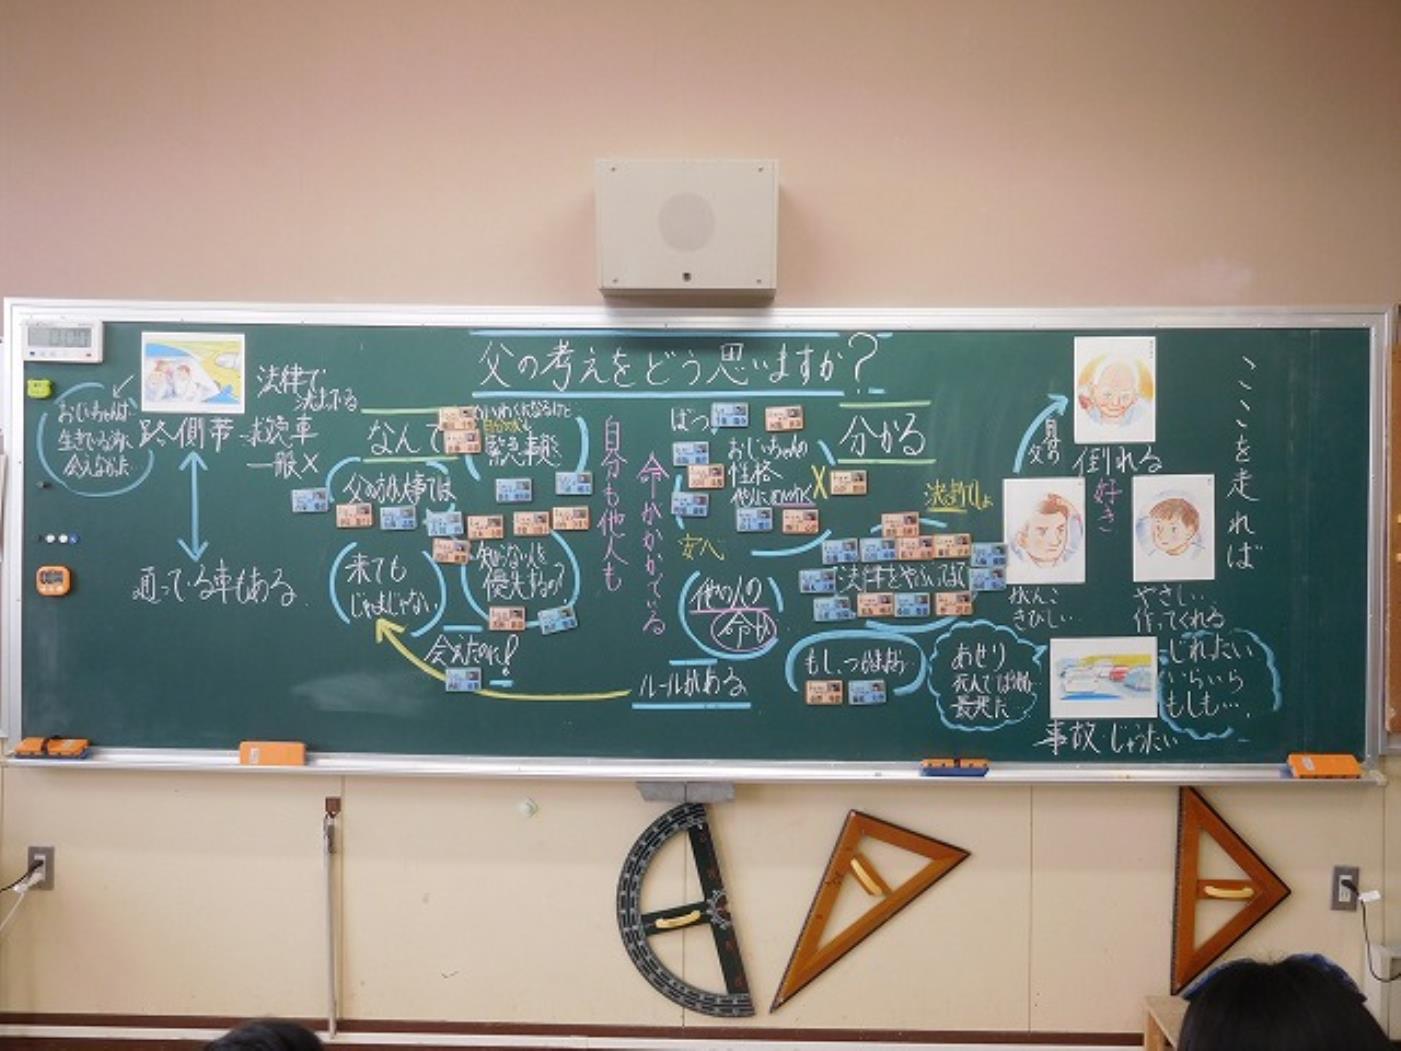 ここを走れば
倒れる
好き
がんこ
きびしい…
やさしい
作ってくれる
じれったい
いらいら
もしも…
事故・じゅうたい
あせり
最悪だ…
父の考えをどう思いますか?
分かる
決まってしょ
法律をやぶってまで
もし、つかまったら…
ばつ
おじいちゃんの
性格
X
他の人の
命も
ルールがある
命がかかっている
自分も他人も
なんで
緊急事態
父のお仕事では
知らない人を
優先するの?
来ても
じゃまじゃない
会えたのに!
法律で
決まってる
路側帯
救急車
一般X
通っている車もある
おじいちゃんは
生きている内に
会えなかった…